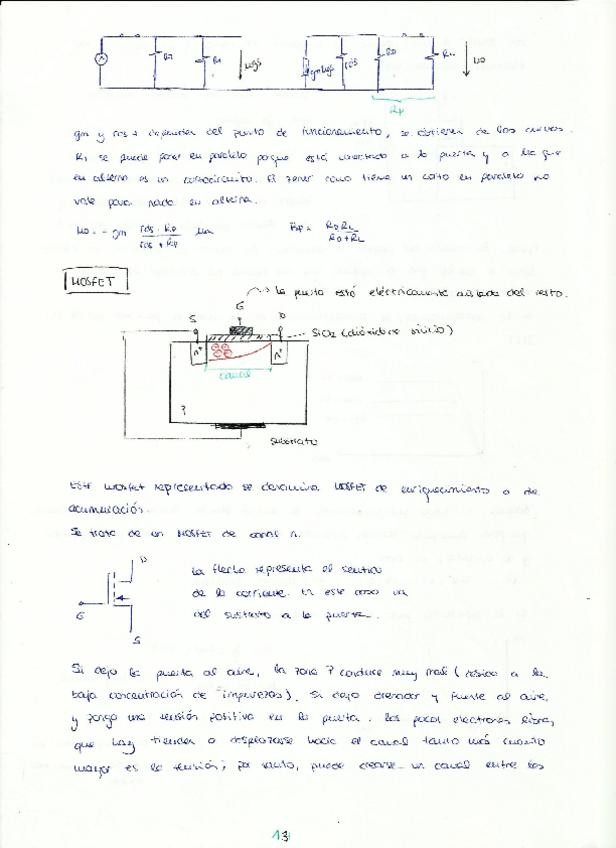 R2
R1
ugs
gm ugs
rds
RD
RL
uo
Rp
gm y rds → dependen del punto de funcionamiento, se obtienen de las curvas.
R1 se puede poner en paralelo porque está conectado a la puerta y a la que
en alterna es un cortocircuito. El zener como tiene un corto en paralelo no
vale para nada en alterna.
uo = - gm rds · Rp / rds + Rp
Rp = RD RL / RD + RL
MOSFET
→ la puerta está eléctricamente aislada del resto.
G
S
D
SiO2 (dióxido de silicio)
n+
n+
canal
P
substrato
Este mosfet representado se denomina MOSFET de enriquecimiento o de
acumulación.
Se trata de un MOSFET de canal n.
D
G
S
La flecha representa el sentido
de la corriente. En este caso va
del sustrato a la puerta.
Si dejo la puerta al aire, la zona P conduce muy mal (debido a la
baja concentración de impurezas). Si dejo drenador y fuente al aire
y pongo una tensión positiva en la puerta. Los pocos electrones libres
que hay tienden a desplazarse hacia el canal tanto más cuanto
mayor es la tensión; por tanto, puede crearse un canal entre las
13